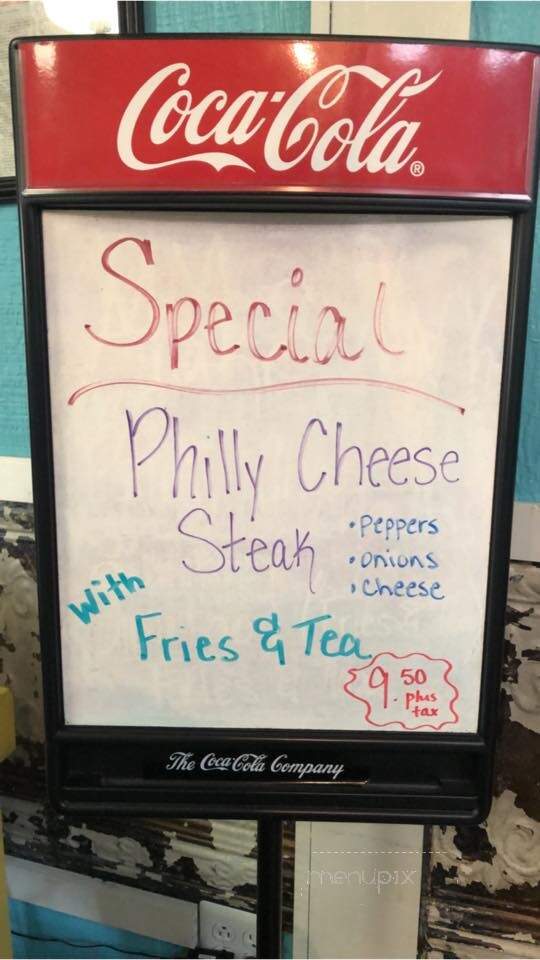 Coca-Cola®
Special
Philly Cheese
Steak
• Peppers
• Onions
• Cheese
With
Fries & Tea
9.50
plus
tax
The Coca-Cola Company
menupix